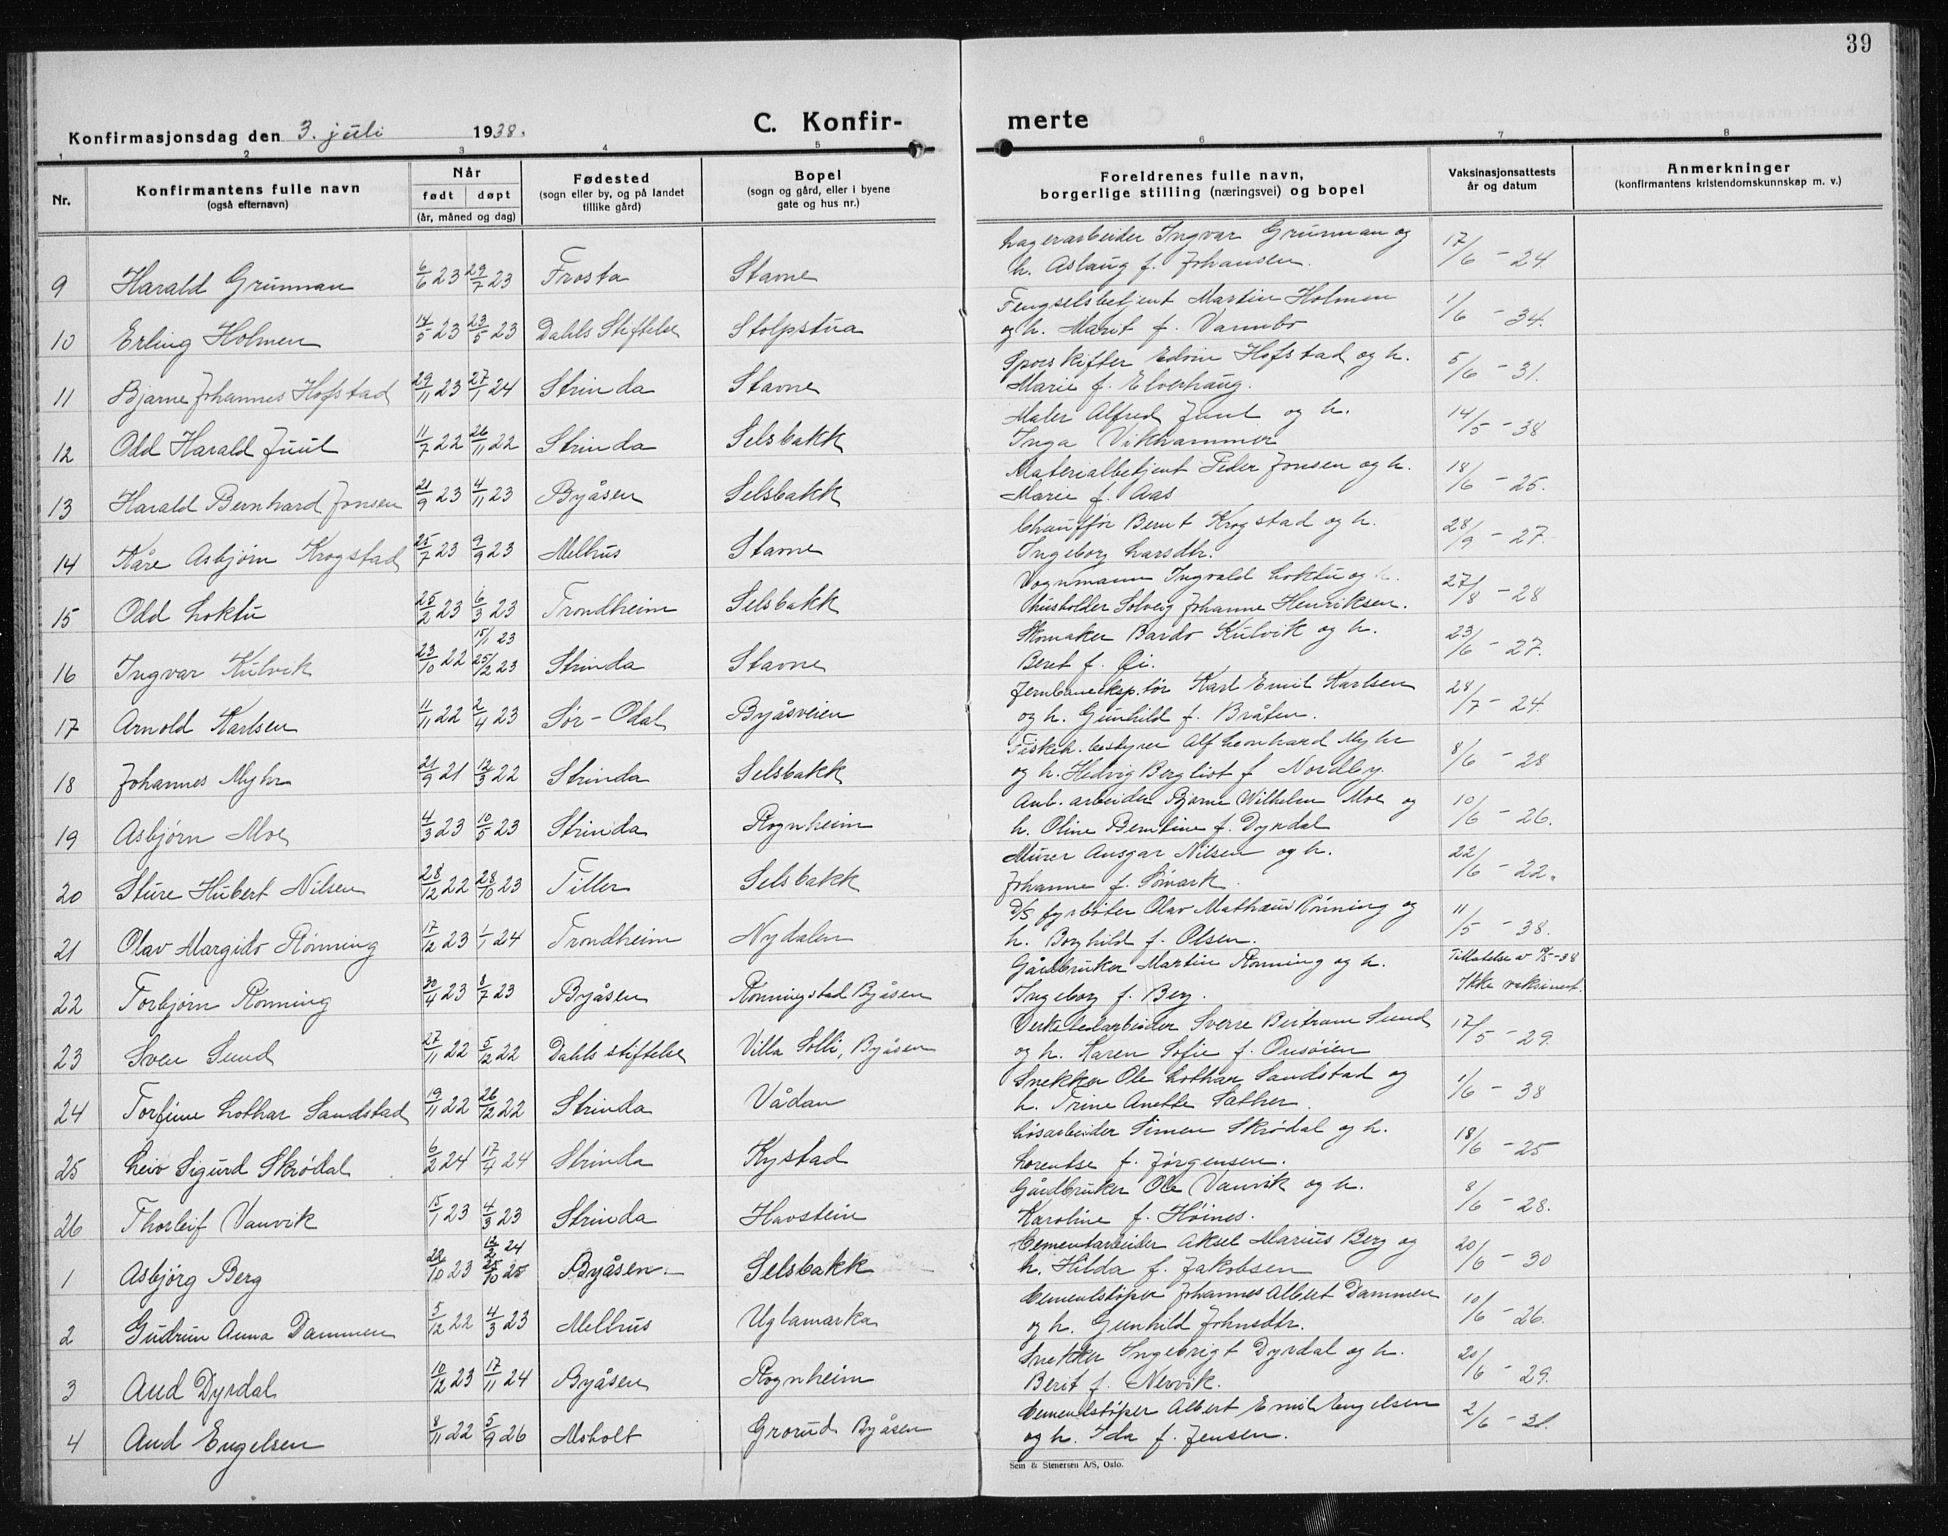 39
Konfirmasjonsdag den 3. juli 1938.
C. Konfir-
merte
1 2 3 4 5 6 7 8
Nr. Konfirmantens fulle navn (også efternavn) Når født døpt (år, måned og dag) Fødested (sogn eller by, og på landet tillike gård) Bopel (sogn og gård, eller i byene gate og hus nr.) Foreldrenes fulle navn, borgerlige stilling (næringsvei) og bopel Vaksinasjonsattests år og datum Anmerkninger (konfirmantens kristendomskunnskap m. v.)
9 Harald Grünman 6/6 23 29/7 23 Frosta Stavne Lagerarbeider Ingvar Grünman og h. Aslaug f. Johansen. 17/6 - 24.
10 Erling Holmen 14/5 23 23/5 23 Dahls Stiftelse Stolpstua Fengselsbetjent Martin Holmen og h. Marit f. Vannebo 1/6 - 34.
11 Bjarne Johannes Hofstad 29/11 23 27/1 24 Strinda Stavne Sporskifter Edvin Hofstad og h. Marie f. Elverhaug. 5/6 - 31.
12 Odd Harald Juul 11/7 22 26/11 22 Strinda Selsbakk Maler Alfred Juul og h. Inga Vikhammer 14/5 - 38
13 Harald Bernhard Jonsen 21/9 23 4/11 23 Byåsen Selsbakk Materialbetjent Peder Jonsen og h. Marie f. Aas 18/6 - 25.
14 Kåre Asbjørn Krogstad 25/7 23 9/9 23 Melhus Stavne Chauffør Bernt Krogstad og h. Ingeborg Larsdtr. 28/9 - 27.
15 Odd Loktu 25/2 23 6/3 23 Trondheim Selsbakk Vognmann Ingvald Loktu og h. husholder Solveig Johanne Henriksen. 27/8 - 28
16 Ingvar Kulvik 23/10 22 15/1 23 25/2 23 Strinda Stavne Skomaker Bardo Kulvik og h. Beret f. Øi. 23/6 - 27.
17 Arnold Karlsen 11/11 22 2/4 23 Sør-Odal Byåsveien Jernbaneeksp.tør Karl Emil Karlsen og h. Gunhild f. Bråten. 28/7 - 24.
18 Johannes Myhr 21/9 21 12/3 22 Strinda Selsbakk Fiskeh. bestyrer Alf Leonhard Myhr og h. Hedvig Bergliot f. Nordby. 8/6 - 28
19 Asbjørn Moe 4/3 23 10/5 23 Strinda Rognheim Anl. arbeider Bjarne Wilhelm Moe og h. Oline Berntine f. Dyrdal 10/6 - 26.
20 Sture Hubert Nilsen 28/12 22 28/10 23 Tiller Selsbakk Murer Ansgar Nilsen og h. Johanne f. Sømark. 22/6 - 22.
21 Olav Margido Rønning 17/12 23 1/1 24 Trondheim Nydalen D/S fyrbøter Olav Mathæus Rønning og h. Borghild f. Olsen. 11/5 - 38.
22 Torbjørn Rønning 30/4 23 8/7 23 Byåsen Rønningstad Byåsen Gårdbruker Martin Rønning og h. Ingeborg f. Berg. Tillatelse av -38 Ikke vaksinert.
23 Sven Sund 27/11 22 5/12 22 Dahls stiftelse Villa Solli, Byåsen Verkstedarbeider Sverre Bertram Sund og h. Karen Sofie f. Onsøien 17/5 - 29.
24 Torfinn Lothar Sandstad 19/11 22 26/12 22 Strinda Vådan Snekker Ole Lothar Sandstad og h. Trine Anette Sæther 1/6 - 38
25 Leiv Sigurd Skrødal 6/2 24 17/4 24 Strinda Kystad Løsarbeider Simen Skrødal og h. Lorentse f. Jørgensen. 18/6 - 25
26 Thorleif Vanvik 15/1 23 4/3 23 Strinda Havstein Gårdbruker Ole Vanvik og h. Karoline f. Høines. 8/6 - 28.
1 Asbjørg Berg 22/10 23 12/2 24 25/10 25 Byåsen Selsbakk Cementarbeider Aksel Marius Berg og h. Hilda f. Jakobsen 20/6 - 30
2 Gudrun Anna Dammen 5/12 22 4/3 23 Melhus Uglamarka Cementstøper Johannes Albert Dammen og h. Gunhild Johnsdtr. 10/6 - 26.
3 Aud Dyrdal 10/12 23 17/11 24 Byåsen Rognheim Snekker Ingebrigt Dyrdal og h. Berit f. Nervik. 20/6 - 29.
4 Aud Engelsen 8/11 22 5/9 26 Asholt Grorud Byåsen Cementstøper Albert Emil Engelsen og h. Ida f. Jensen. 2/6 - 31.
Sem & Stenersen A/S, Oslo.